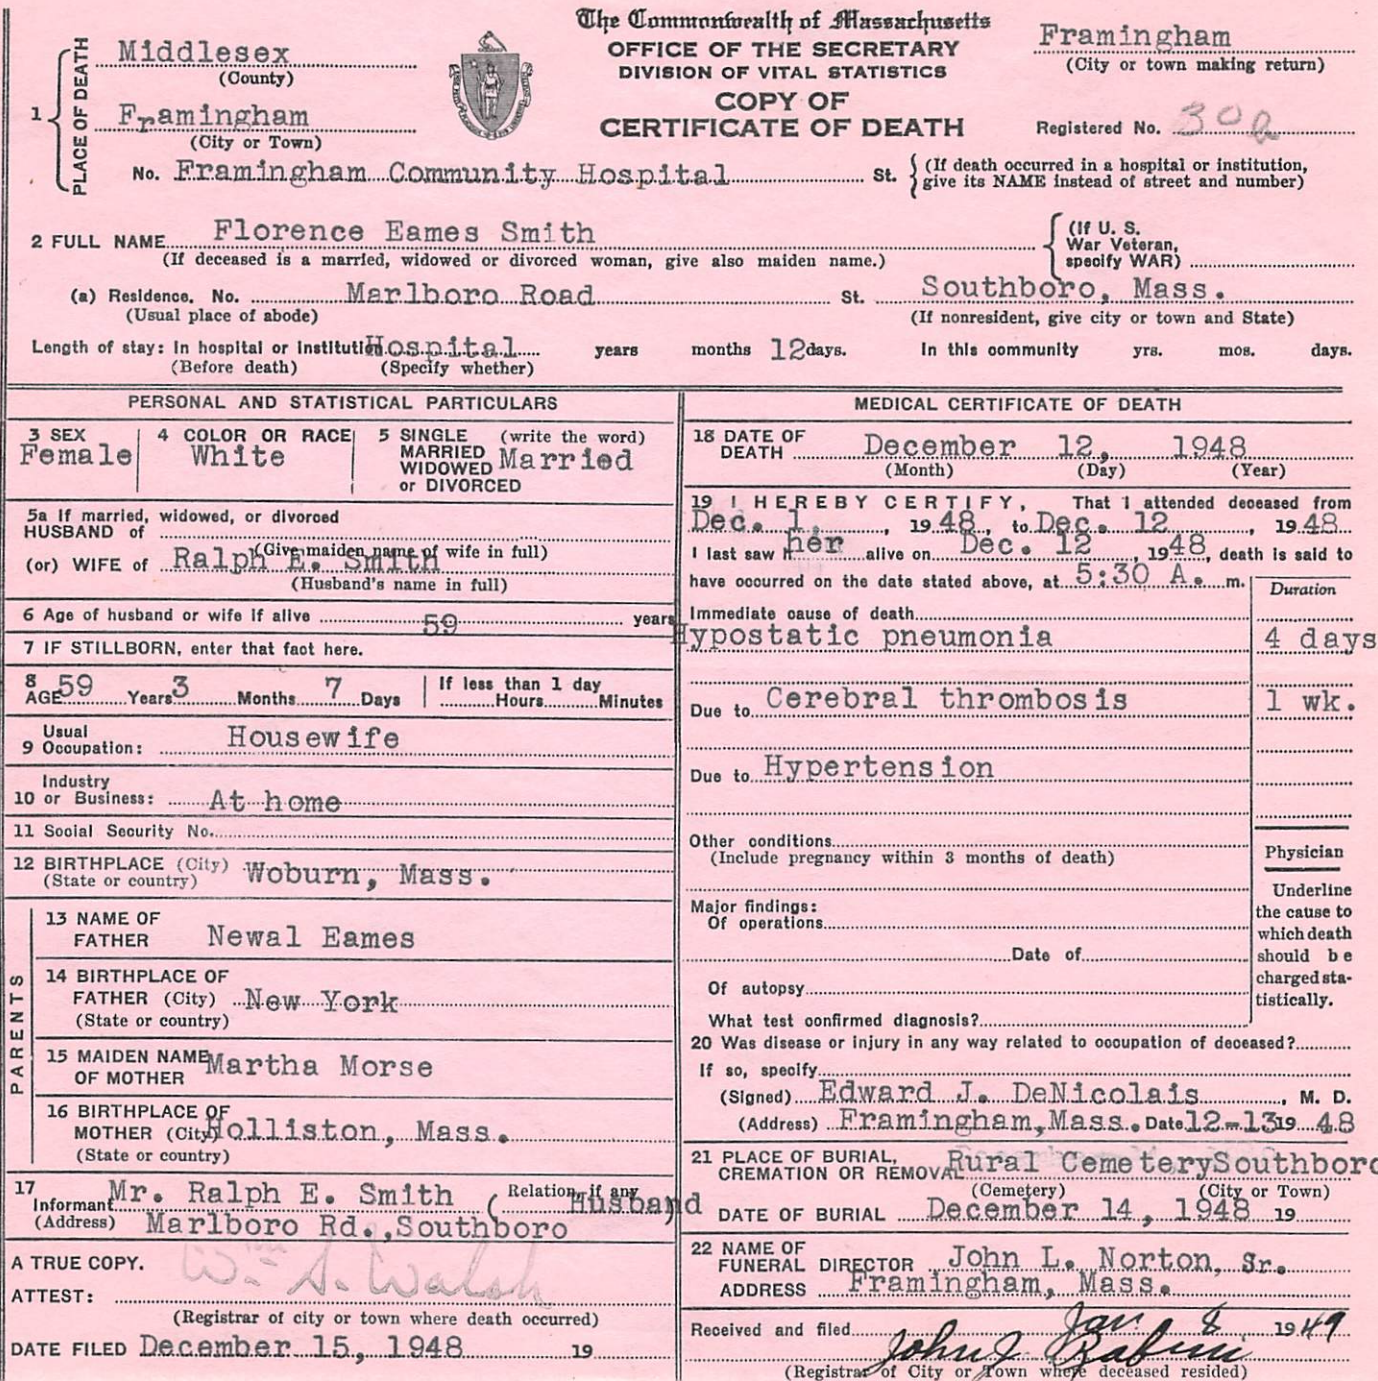 The Commonwealth of Massachusetts
OFFICE OF THE SECRETARY
DIVISION OF VITAL STATISTICS
COPY OF
CERTIFICATE OF DEATH
Framingham
(City or town making return)
Registered No.
1 PLACE OF DEATH
Middlesex
(County)
Framingham
(City or Town)
No. Framingham Community Hospital St. (If death occurred in a hospital or institution, give its NAME instead of street and number)
2 FULL NAME Florence Eames Smith
(If deceased is a married, widowed or divorced woman, give also maiden name.)
(If U. S. War Veteran, specify WAR)
(a) Residence. No. Marlboro Road St. Southboro, Mass.
(Usual place of abode) (If nonresident, give city or town and State)
Length of stay: In hospital or institution Hospital years months 12 days. In this community yrs. mos. days.
(Before death) (Specify whether)
PERSONAL AND STATISTICAL PARTICULARS
3 SEX
Female
4 COLOR OR RACE
White
5 SINGLE MARRIED WIDOWED or DIVORCED (write the word)
Married
5a If married, widowed, or divorced
HUSBAND of
(Give maiden name of wife in full)
(or) WIFE of Ralph E. Smith
(Husband's name in full)
6 Age of husband or wife if alive 59 years
7 IF STILLBORN, enter that fact here.
8 AGE 59 Years 3 Months 7 Days If less than 1 day Hours Minutes
9 Usual Occupation: Housewife
10 Industry or Business: At home
11 Social Security No.
12 BIRTHPLACE (City) Woburn, Mass.
(State or country)
PARENTS
13 NAME OF FATHER Newal Eames
14 BIRTHPLACE OF FATHER (City) New York
(State or country)
15 MAIDEN NAME OF MOTHER Martha Morse
16 BIRTHPLACE OF MOTHER (City) Holliston, Mass.
(State or country)
17 Informant Mr. Ralph E. Smith (Relation, if any Husband)
(Address) Marlboro Rd.,Southboro
A TRUE COPY.
ATTEST: Wm S. Walsh
(Registrar of city or town where death occurred)
DATE FILED December 15, 1948 19
MEDICAL CERTIFICATE OF DEATH
18 DATE OF DEATH December 12, 1948
(Month) (Day) (Year)
19 I HEREBY CERTIFY, That I attended deceased from
Dec. 1, 1948, to Dec. 12, 1948
I last saw her alive on Dec. 12, 1948, death is said to
have occurred on the date stated above, at 5:30 A. m.
Duration
Immediate cause of death
Hypostatic pneumonia 4 days
Due to Cerebral thrombosis 1 wk.
Due to Hypertension
Other conditions
(Include pregnancy within 3 months of death)
Major findings:
Of operations
Date of
Of autopsy
What test confirmed diagnosis?
Physician
Underline
the cause to
which death
should be
charged sta-
tistically.
20 Was disease or injury in any way related to occupation of deceased?
If so, specify
(Signed) Edward J. DeNicolais, M. D.
(Address) Framingham,Mass. Date 12-13 19 48
21 PLACE OF BURIAL, CREMATION OR REMOVAL Rural Cemetery Southboro
(Cemetery) (City or Town)
DATE OF BURIAL December 14, 1948 19
22 NAME OF FUNERAL DIRECTOR John L. Norton, Sr.
ADDRESS Framingham, Mass.
Received and filed Jan. 8 1949
John J.
(Registrar of City or Town where deceased resided)